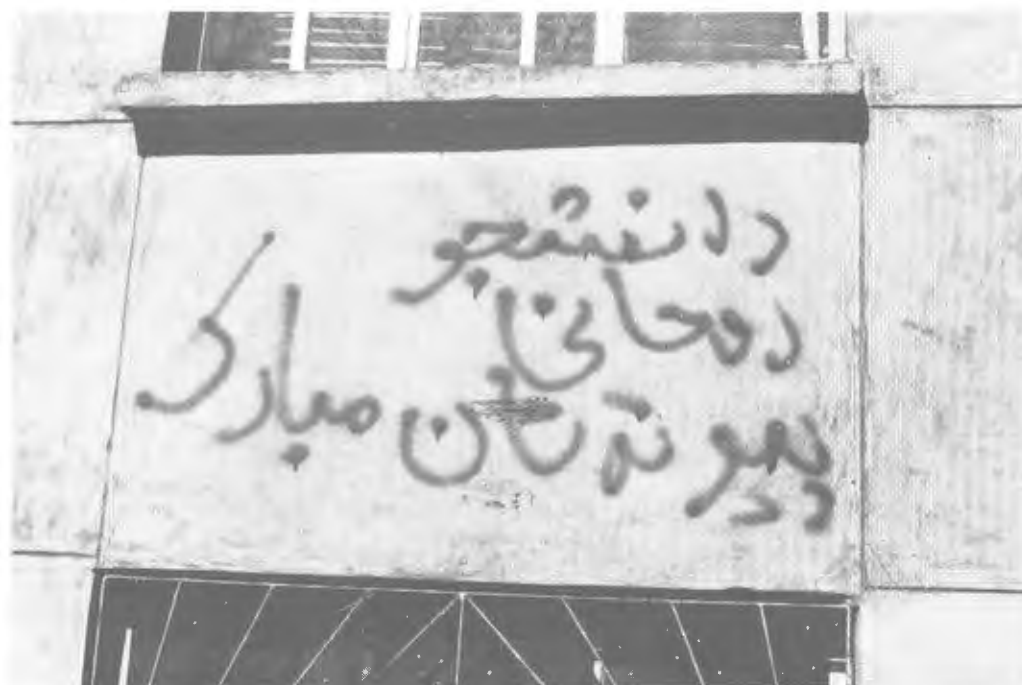 دانشجو
روحانی
پیوندتان مبارک